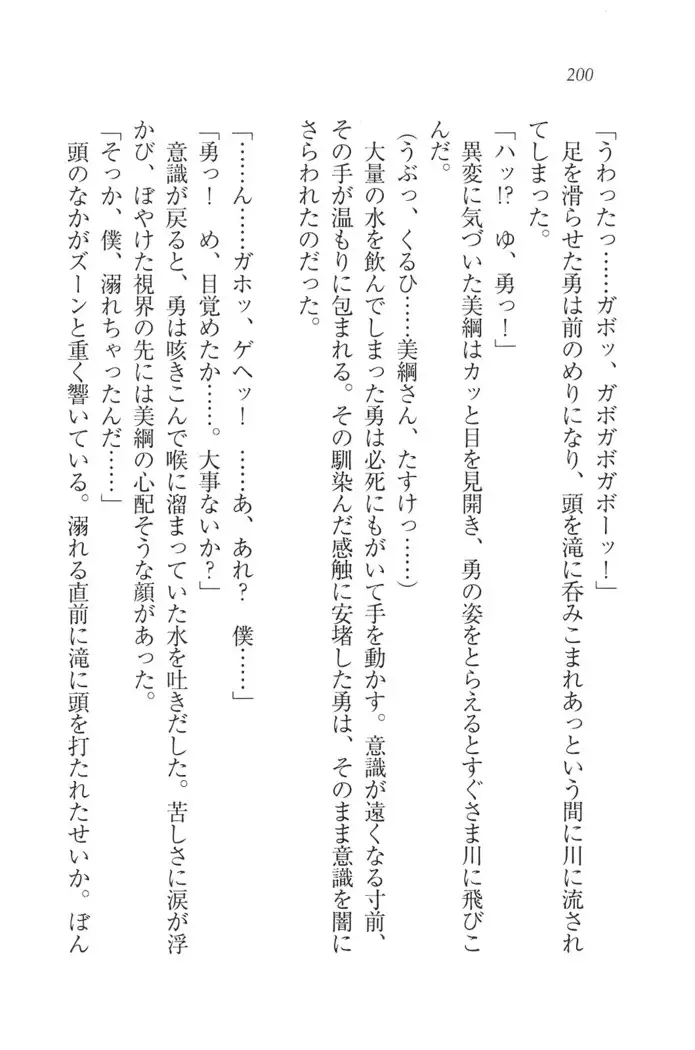 200
「うわったっ……ガボッ、ガボガボガボーッ！」
　足を滑らせた勇は前のめりになり、頭を滝に呑みこまれあっという間に川に流され
てしまった。
「ハッ!?　ゆ、勇っ！」
　異変に気づいた美綱はカッと目を見開き、勇の姿をとらえるとすぐさま川に飛びこ
んだ。
（うぶっ、くるひ……美綱さん、たすけっ……）
　大量の水を飲んでしまった勇は必死にもがいて手を動かす。意識が遠くなる寸前、
その手が温もりに包まれる。その馴染んだ感触に安堵した勇は、そのまま意識を闇に
さらわれたのだった。
「……ん……ガホッ、ゲヘッ！　……あ、あれ？　僕……」
「勇っ！　め、目覚めたか……。大事ないか？」
　意識が戻ると、勇は咳きこんで喉に溜まっていた水を吐きだした。苦しさに涙が浮
かび、ぼやけた視界の先には美綱の心配そうな顔があった。
「そっか、僕、溺れちゃったんだ……」
　頭のなかがズーンと重く響いている。溺れる直前に滝に頭を打たれたせいか。ぼん